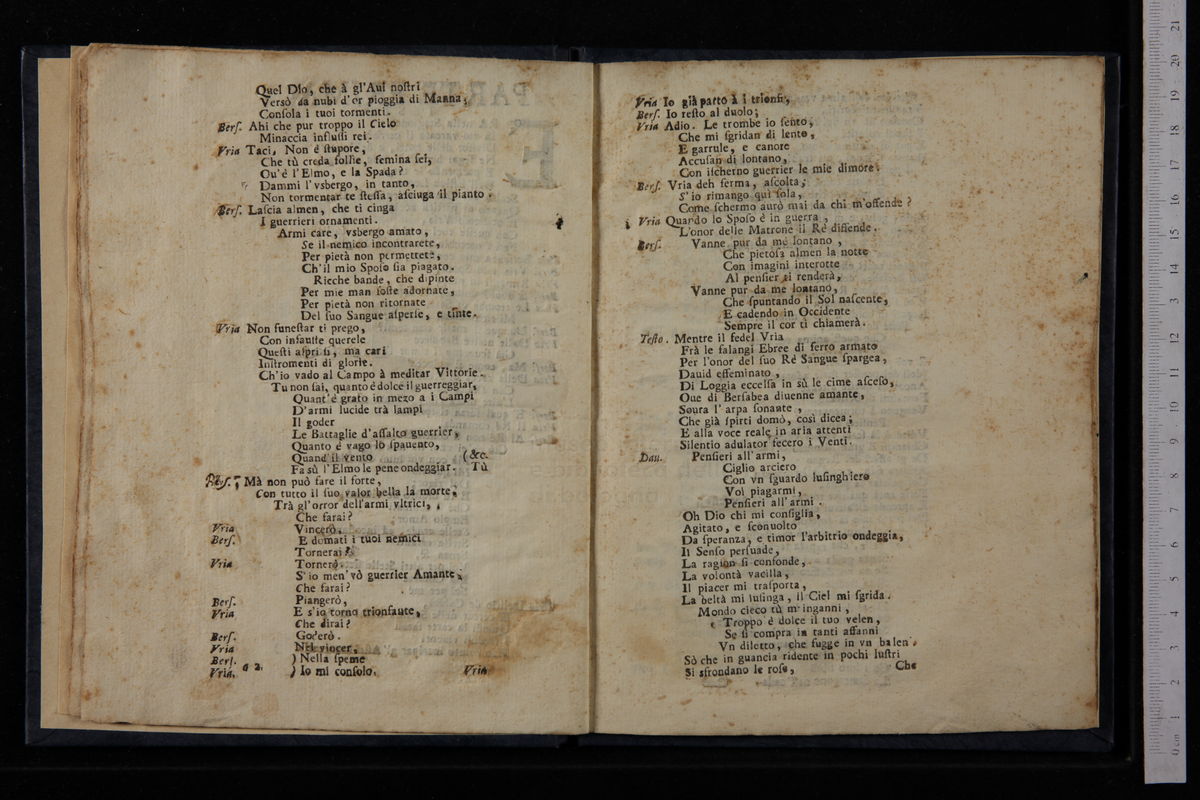 Quel Dio, che à gl'Aui noſtri
Versò da nubi d'or pioggia di Manna,
Conſola i tuoi tormenti.
Berſ. Ahi che pur troppo il Cielo
Minaccia influſſi rei.
Vria Taci, Non è ſtupore,
Che tù creda follie, femina ſei,
Ou'è l'Elmo, e la Spada?
Dammi l'vsbergo, in tanto,
Non tormentar te ſteſſa, aſciuga il pianto.
Berſ. Laſcia almen, che ti cinga
I guerrieri ornamenti.
Armi care, vsbergo amato,
Se il nemico incontrarete,
Per pietà non permettete,
Ch'il mio Spoſo ſia piagato.
Ricche bande, che dipinte
Per mie man foſte adornate,
Per pietà non ritornate
Del ſuo Sangue aſperſe, e tinte.
Vria Non funeſtar ti prego,
Con infauſte querele
Queſti aſpri ſi, ma cari
Inſtromenti di glorie.
Ch'io vado al Campo à meditar Vittorie.
Tu non ſai, quanto è dolce il guerreggiar,
Quant'è grato in mezo a i Campi
D'armi lucide trà lampi
Il goder
Le Battaglie d'aſſalto guerrier,
Quanto è vago lo ſpauento,
Quand'il vento (&c.
Fa sù l'Elmo le pene ondeggiar. Tù
Berſ. Mà non può fare il forte,
Con tutto il ſuo valor bella la morte;
Trà gl'orror dell'armi vltrici,
Che farai?
Vria Vincerò.
Berſ. E domati i tuoi nemici
Tornerai?
Vria Tornerò.
S'io men'vò guerrier Amante,
Che farai?
Berſ. Piangerò,
Vria E s'io torno trionfante,
Che dirai?
Berſ. Goderò.
Vria Nel vincer,
Berſ. ) Nella ſpeme
Vria. a 2. ) Io mi conſolo.
Vria
Vria Io già parto à i trionfi,
Berſ. Io reſto al duolo;
Vria Adio. Le trombe io ſento,
Che mi ſgridan di lento,
E garrule, e canore
Accuſan di lontano,
Con iſcherno guerrier le mie dimore.
Berſ. Vria deh ferma, aſcolta;
S'io rimango quì ſola,
Come ſchermo aurò mai da chi m'offende?
Vria Quando lo Spoſo è in guerra,
L'onor delle Matrone il Rè diffende.
Berſ. Vanne pur da me lontano,
Che pietoſa almen la notte
Con imagini interotte
Al penſier ti renderà,
Vanne pur da me lontano,
Che ſpuntando il Sol naſcente,
E cadendo in Occidente
Sempre il cor ti chiamerà.
Teſto. Mentre il fedel Vria
Frà le falangi Ebree di ferro armato
Per l'onor del ſuo Rè Sangue ſpargea,
Dauid effeminato,
Di Loggia eccelſa in sù le cime aſceſo,
Oue di Berſabea diuenne amante,
Soura l'arpa ſonante,
Che già ſpirti domò, così dicea;
E alla voce reale in aria attenti
Silentio adulator fecero i Venti.
Dau. Penſieri all'armi,
Ciglio arciero
Con vn ſguardo luſinghiero
Vol piagarmi,
Penſieri all'armi.
Oh Dio chi mi conſiglia,
Agitato, e ſconuolto
Da ſperanza, e timor l'arbitrio ondeggia,
Il Senſo perſuade,
La ragion ſi confonde,
La volontà vacilla,
Il piacer mi traſporta,
La beltà mi luſinga, il Ciel mi ſgrida.
Mondo cieco tù m'inganni,
Troppo è dolce il tuo velen,
Se ſi compra in tanti affanni
Vn diletto, che fugge in vn balen.
Sò che in guancia ridente in pochi luſtri
Si sfrondano le roſe,
Che